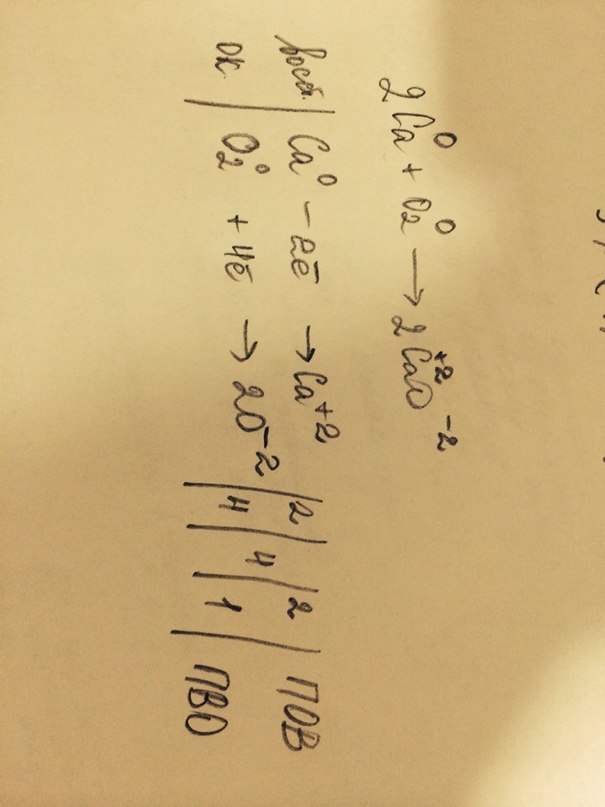 2Ca⁰ + O₂⁰ → 2Ca⁺²O⁻²
восст. | Ca⁰ – 2ē → Ca⁺² | 2 | 4 | 2 | ПОВ
ок | O₂⁰ + 4ē → 2O⁻² | 4 | | 1 | ПВО